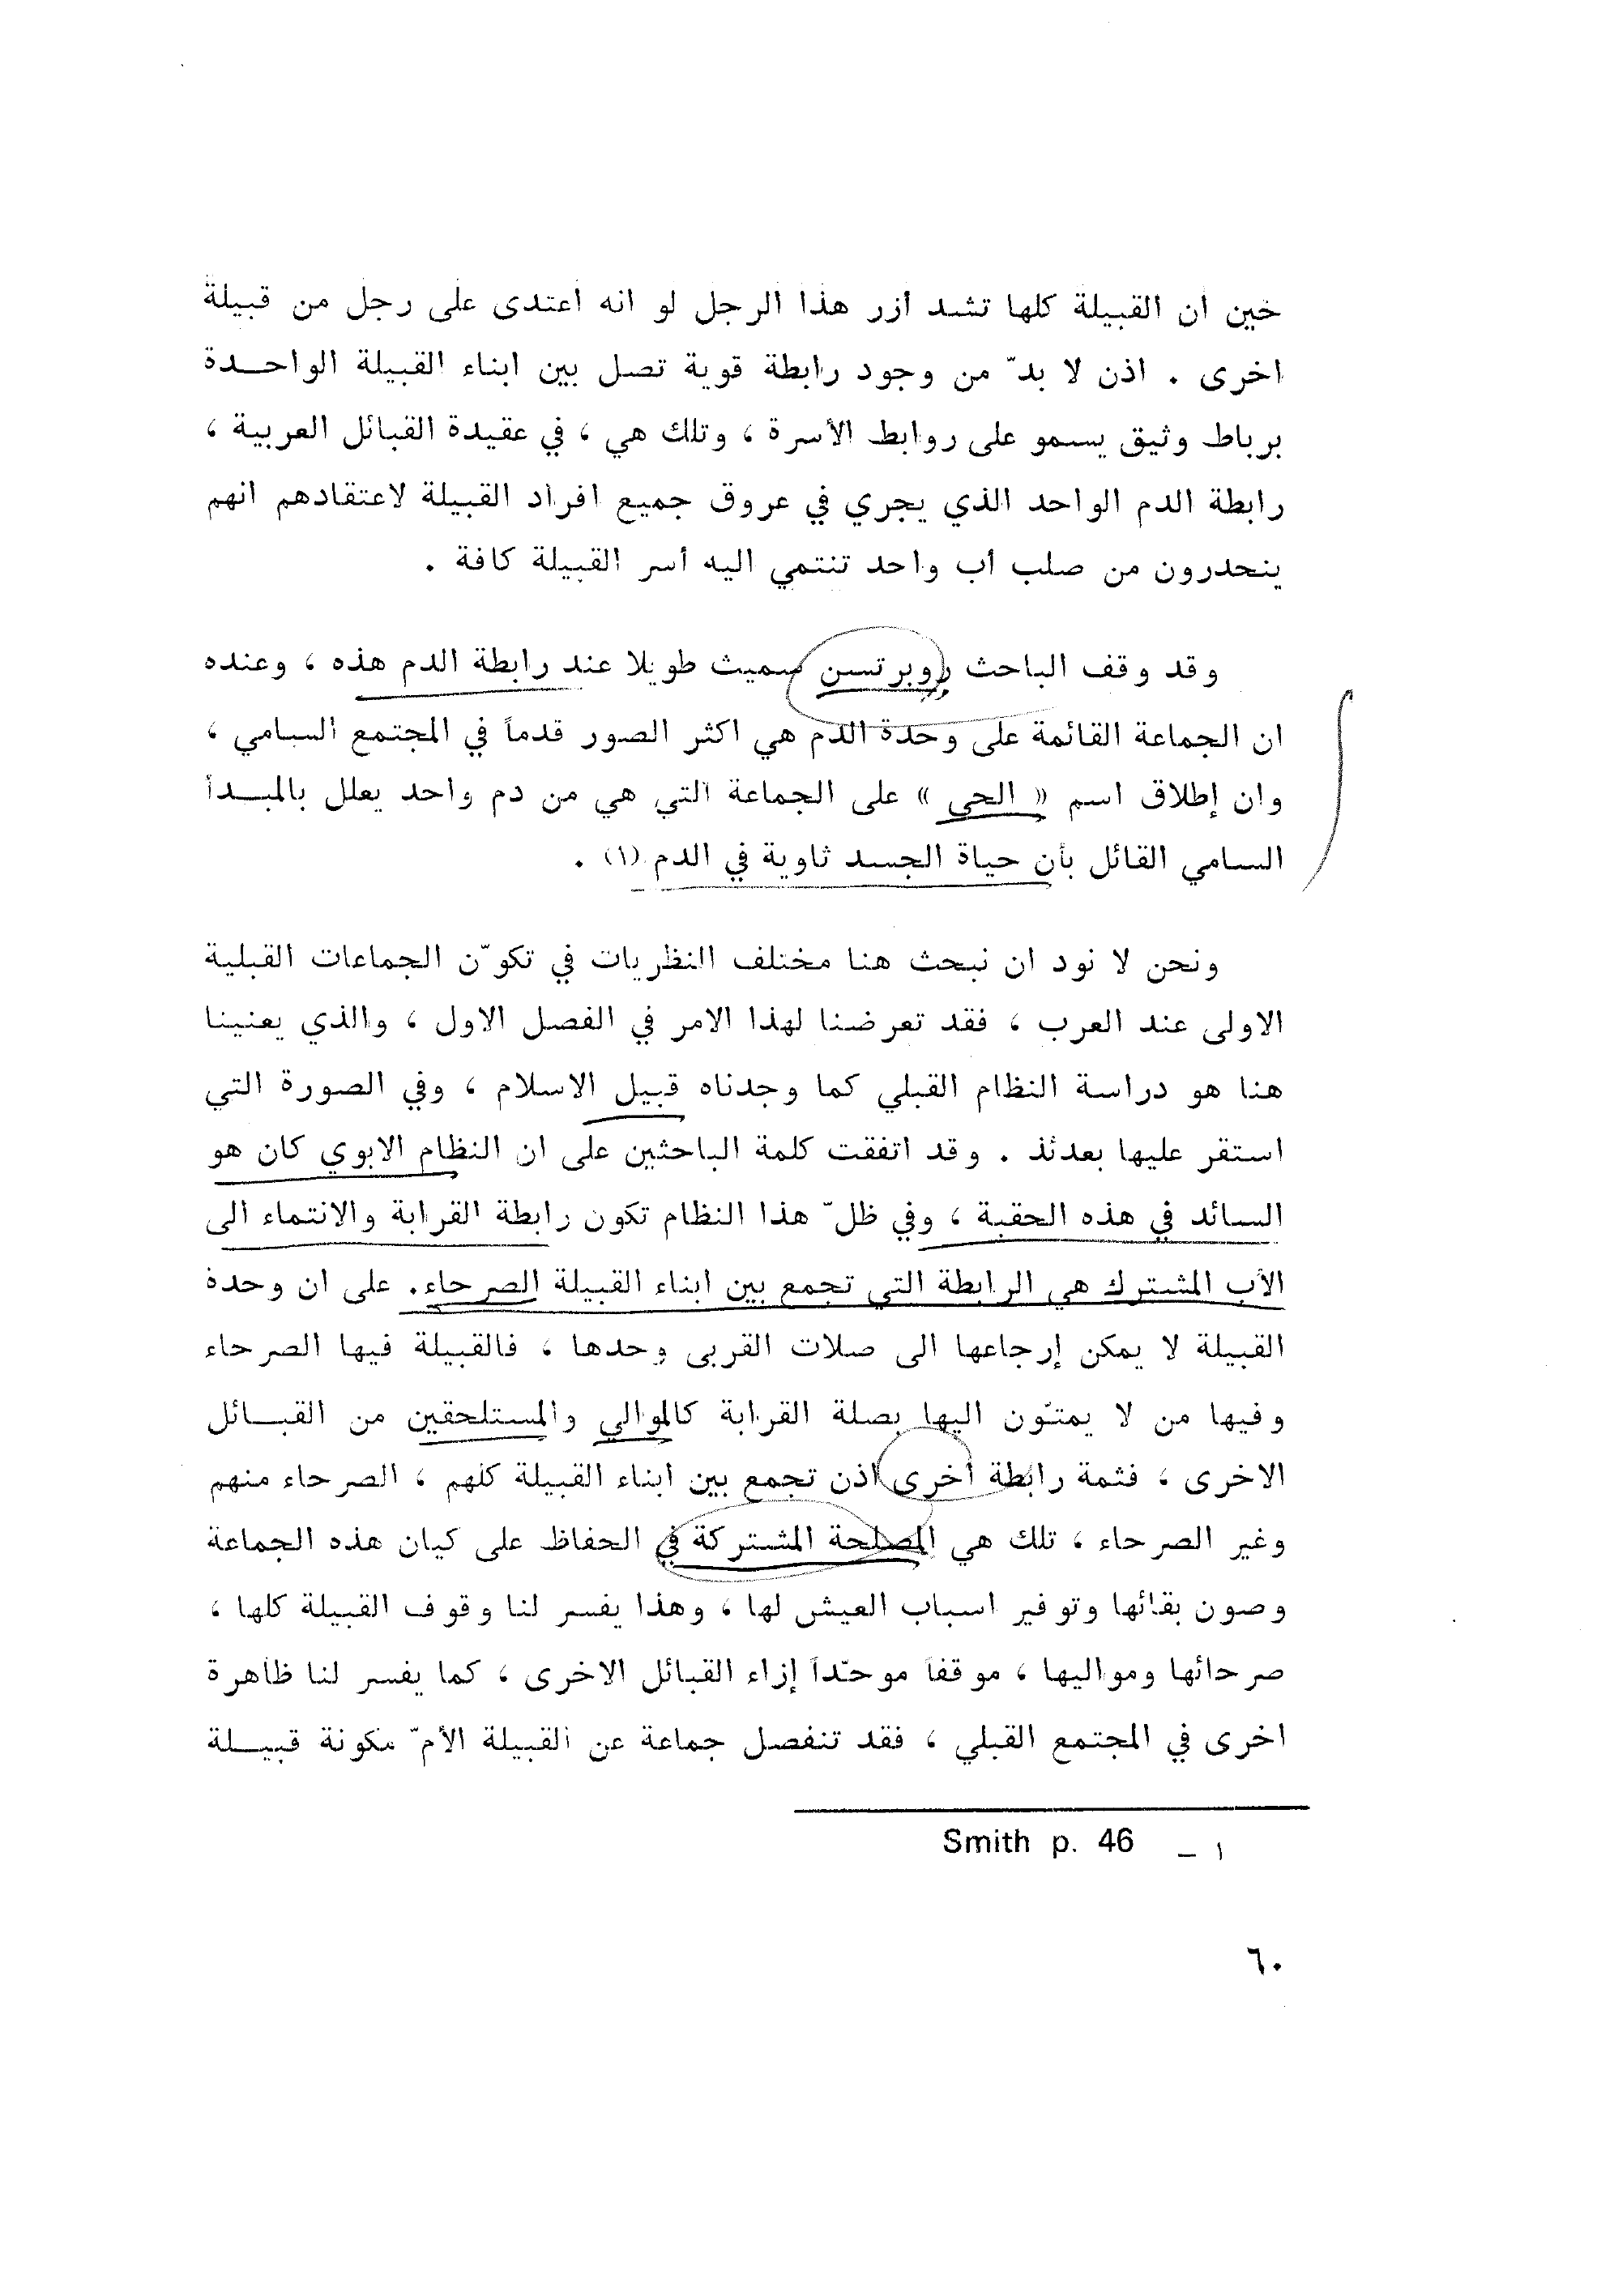 حين ان القبيلة كلها تشد أزر هذا الرجل لو انه اعتدى على رجل من قبيلة
اخرى . اذن لا بدّ من وجود رابطة قوية تصل بين ابناء القبيلة الواحــدة
برباط وثيق يسمو على روابط الأسرة ، وتلك هي ، في عقيدة القبائل العربية ،
رابطة الدم الواحد الذي يجري في عروق جميع افراد القبيلة لاعتقادهم انهم
ينحدرون من صلب أب واحد تنتمي اليه أسر القبيلة كافة .
وقد وقف الباحث روبرتسن سميث طويلا عند رابطة الدم هذه ، وعنده
ان الجماعة القائمة على وحدة الدم هي اكثر الصور قدماً في المجتمع السامي ،
وان إطلاق اسم « الحي » على الجماعة التي هي من دم واحد يعلل بالمبــدأ
السامي القائل بأن حياة الجسد ثاوية في الدم (١) .
ونحن لا نود ان نبحث هنا مختلف النظريات في تكوّن الجماعات القبلية
الاولى عند العرب ، فقد تعرضنا لهذا الامر في الفصل الاول ، والذي يعنينا
هنا هو دراسة النظام القبلي كما وجدناه قبيل الاسلام ، وفي الصورة التي
استقر عليها بعدئذ . وقد اتفقت كلمة الباحثين على ان النظام الابوي كان هو
السائد في هذه الحقبة ، وفي ظلّ هذا النظام تكون رابطة القرابة والانتماء الى
الأب المشترك هي الرابطة التي تجمع بين ابناء القبيلة الصرحاء. على ان وحدة
القبيلة لا يمكن إرجاعها الى صلات القربى وحدها ، فالقبيلة فيها الصرحاء
وفيها من لا يمتّون اليها بصلة القرابة كالموالي والمستلحقين من القبــائل
الاخرى ، فثمة رابطة أخرى اذن تجمع بين ابناء القبيلة كلهم ، الصرحاء منهم
وغير الصرحاء ، تلك هي المصلحة المشتركة في الحفاظ على كيان هذه الجماعة
وصون بقائها وتوفير اسباب العيش لها ، وهذا يفسر لنا وقوف القبيلة كلها ،
صرحائها ومواليها ، موقفاً موحّداً إزاء القبائل الاخرى ، كما يفسر لنا ظاهرة
اخرى في المجتمع القبلي ، فقد تنفصل جماعة عن القبيلة الأمّ مكونة قبيــلة
١ – Smith p. 46
٦٠